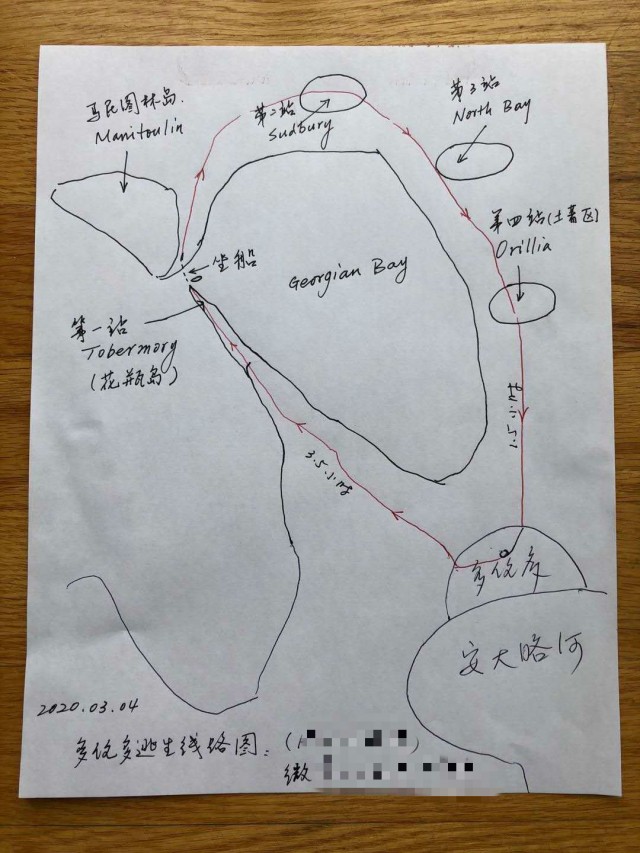 马民图林岛.
Manitoulin
第二站
Sudbury
第3站
North Bay
第四站(土著区)
Orillia
坐船
Georgian Bay
第一站
Tobermory
(花瓶岛)
1.5小时
3.5小时
多伦多
安大略河
2020.03.04
多伦多逃生线路图:
微